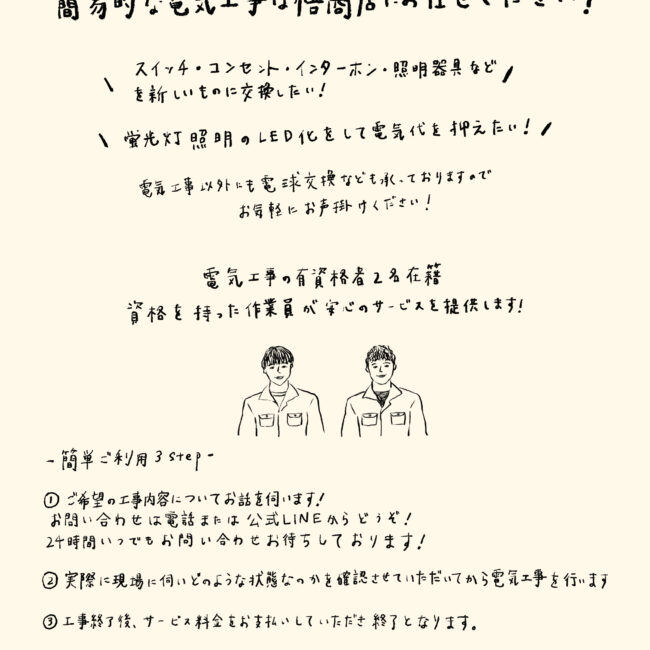 簡易的な電気工事は
にお任せください!
スイッチ・コンセント・インターホン・照明器具など
を新しいものに交換したい!
蛍光灯照明のLED化をして電気代を抑えたい!
電気工事以外にも電球交換なども承っておりますので
お気軽にお声掛けください!
電気工事の有資格者2名在籍
資格を持った作業員が安心のサービスを提供します!
-簡単ご利用3step-
①ご希望の工事内容についてお話を伺います!
お問い合わせは電話または公式LINEからどうぞ!
24時間いつでもお問い合わせお待ちしております!
②実際に現場に伺いどのような状態なのかを確認させていただいてから電気工事を行います
③工事終了後、サービス料金をお支払いしていただき終了となります。